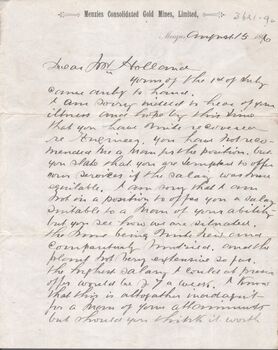 Menzies Consolidated Gold Mines, Limited,
Menzies August 13 1896
Dear Mr Holland
Yours of the 1st of July
came duly to hand.
I am sorry indeed to hear of your
illness and hope by this time
that you have quite recovered.
re Engineer, you have not reco-
mended me a man for the position. but
you state that you are tempted to offer
your services if the salary was more
equitable. I am sorry that I am
not in a position to offer you a salary
suitable to a Man of your ability
but you see how we are situated,
the Mine being and
comparatively and the
plant not very expensive so far.
the highest salary I could at present
offer would be £7 a week. I know
that this is altogether inadequate
for a Man of your attainments
but should you think it worth